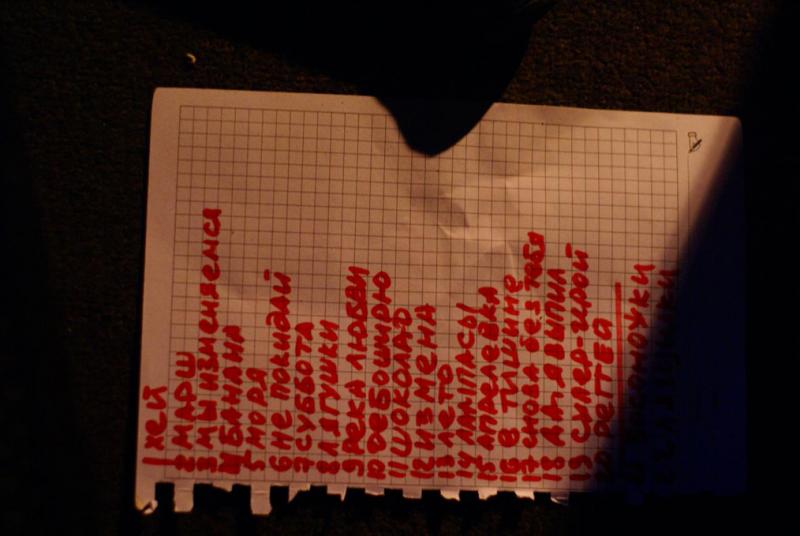 1 ХЕЙ
2 МАРШ
3 МЫ ИЗМЕНЯЕМСЯ
4 БАНАНА
5 МОРЯ
6 НЕ ПОКИДАЙ
7 СУББОТА
8 ЛЯГУШКИ
9 РЕКА ЛЮБВИ
10 ДЕБОШИРЮ
11 ШОКОЛАД
12 ИЗМЕНА
13 ЛЕТО
14 ЛАМПАСЫ
15 АПРЕЛЕВКА
16 В ТИШИНЕ
17 СНОВА БЕЗ ТЕБЯ
18 ДА Я ВЫПИЛ
19 СУПЕР-ГЕРОЙ
20 РЕГГЕЙ